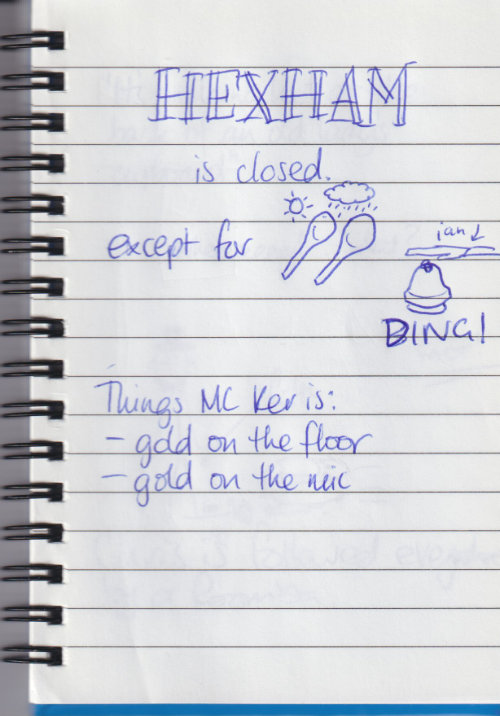 HEXHAM
is closed.
except for
ian
DING!
Things MC Ker is:
- gold on the floor
- gold on the mic